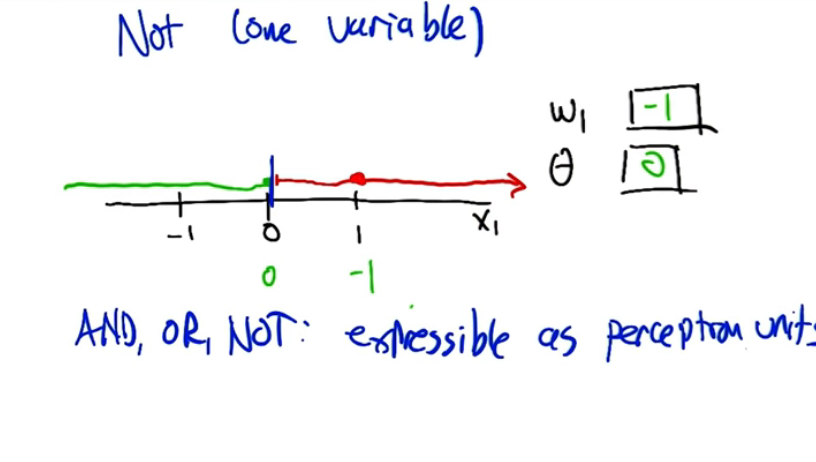 Not (one variable)
w₁ -1
θ 0
-1 0 1 x₁
0 -1
AND, OR, NOT: expressible as perceptron units